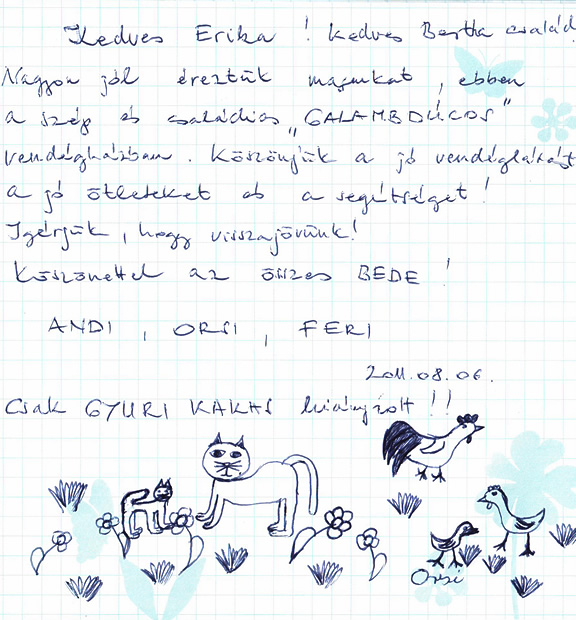 Kedves Erika ! Kedves Bertha család
Nagyon jól éreztük magunkat , ebben
a szép és családias „GALAMBDÚCOS”
vendégházban . Köszönjük a jó vendéglátást
a jó ötleteket és a segítséget !
Igérjük , hogy visszajövünk !
Köszönettel az összes BEDE !
ANDI , ORSI , FERI
2011.08.06.
Csak GYURI KAKAS hiányzott !!
Orsi